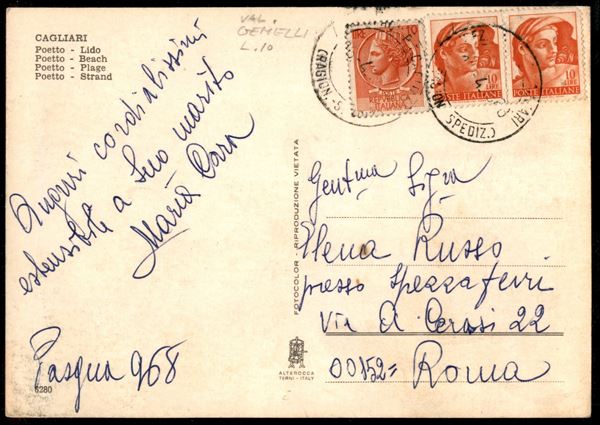 CAGLIARI
Poetto - Lido
Poetto - Beach
Poetto - Plage
Poetto - Strand
VAL.
GEMELLI
L.10
Auguri cordialissimi
estensibili a Suo marito
Maria Cara
Pasqua 968
5280
FOTOCOLOR - RIPRODUZIONE VIETATA
ALTEROCCA
TERNI - ITALY
LIRE 10
REPVBBLICA
ITALIANA
10
LIRE
POSTE ITALIANE
10
LIRE
POSTE ITALIANE
SPEDIZ.)
Gent.ma Sig.ra
Elena Russo
presso Spezzaferri
Via A. Cerasi 22
00152= Roma